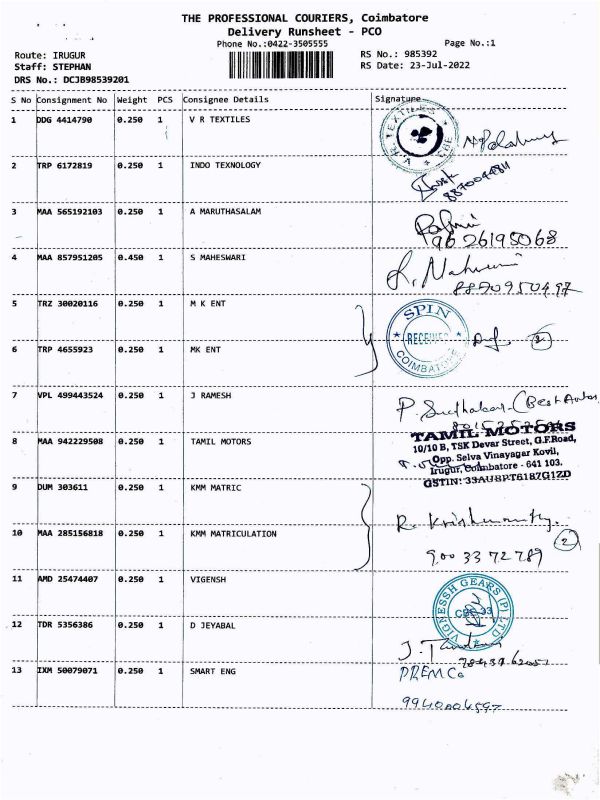 THE PROFESSIONAL COURIERS, Coimbatore
Delivery Runsheet - PCO
Phone No.:0422-3505555
Page No.:1
Route: IRUGUR
RS No.: 985392
Staff: STEPHAN
RS Date: 23-Jul-2022
DRS No.: DCJB98539201
S No Consignment No Weight PCS Consignee Details Signature
1 DDG 4414790 0.250 1 V R TEXTILES
V.R. TEXTILES
2 TRP 6172819 0.250 1 INDO TEXNOLOGY
3 MAA 565192103 0.250 1 A MARUTHASALAM
96 26195068
4 MAA 857951205 0.450 1 S MAHESWARI
5 TRZ 30020116 0.250 1 M K ENT
SPIN
RECEIVED
COIMBATORE
2
6 TRP 4655923 0.250 1 MK ENT
7 VPL 499443524 0.250 1 J RAMESH
8 MAA 942229508 0.250 1 TAMIL MOTORS
TAMIL MOTORS
10/10 B, TSK Devar Street, G.F.Road,
Opp. Selva Vinayagar Kovil,
Irugur, Coimbatore - 641 103.
GSTIN: 33AUBPT6187G1ZD
9 DUM 303611 0.250 1 KMM MATRIC
2
10 MAA 285156818 0.250 1 KMM MATRICULATION
900 33 72789
11 AMD 25474407 0.250 1 VIGENSH
VIGNESSH GEARS (P) LTD
12 TDR 5356386 0.250 1 D JEYABAL
13 IXM 50079071 0.250 1 SMART ENG
PREMCo